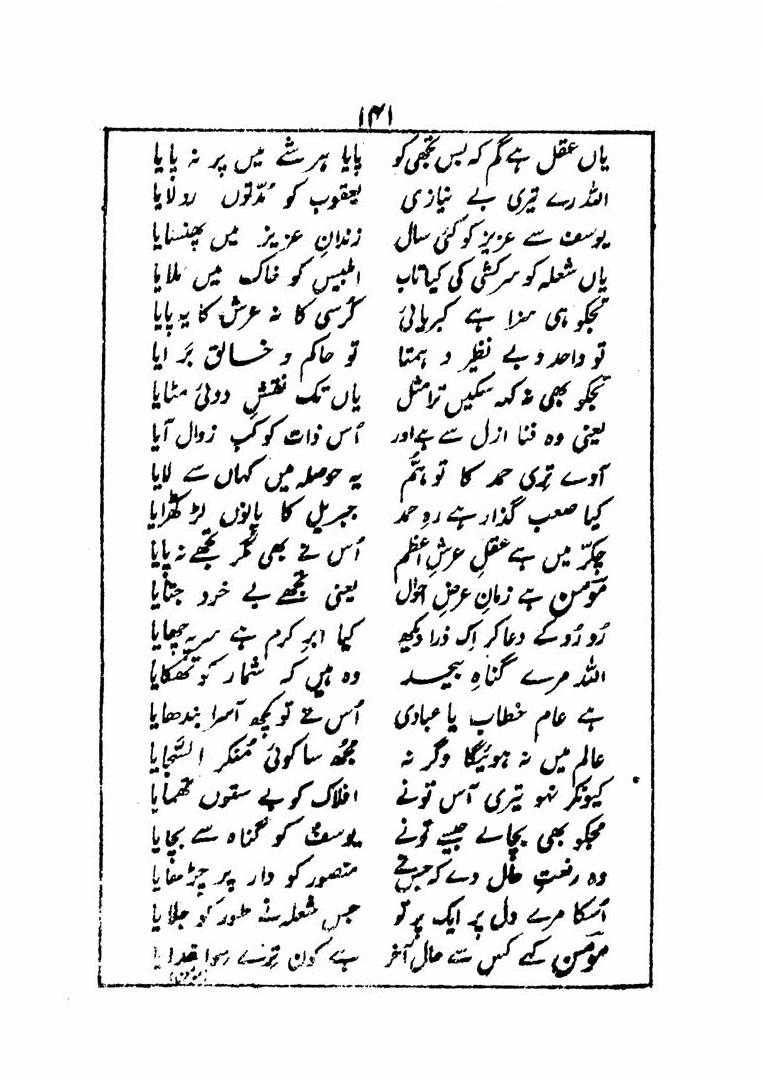 ۱۴۱
یاں عقل ہے گم کہ بس تجھی کو پایا ہر شے میں پر نہ پایا
اللہ رے تیری بے نیازی یعقوب کو مدّتوں رولایا
یوسف سے عزیز کو کئی سال زندانِ عزیز میں پھنسایا
یاں شعلہ کو سرکشی کی کیا تاب ابلیس کو خاک میں ملایا
تجکو ہی سزا ہے کبریائی کُرسی کا نہ عرش کا یہ پایا
تو واحد و بے نظیر و ہمتا تو حاکم و خالق بَرایا
تجکو بھی نہ کہہ سکیں ترا مثل یاں تک نقشِ دوئی مٹایا
یعنی وہ فنا ازل سے ہے اور اُس ذات کو کب زوال آیا
آوے تِری حمد کا توہُّم یہ حوصلہ میں کہاں سے لایا
کیا صعب گذار ہے رہِ حمد جبریل کا پانوں لڑکھڑایا
چکّر میں ہے عقلِ عرشِ اعظم اُس نے بھی مگر تجھے نہ پایا
مومنؔ ہے زمانِ عرضِ احوال یعنی تجھے بے خرد جتایا
رُو رُو کے دعا کر اِک ذرا دیکھ کیا ابرِ کرم ہے سر پہ چھایا
اللہ مرے گناہِ بیحد وہ ہیں کہ شمار کو تھکایا
ہے عام خطاب یا عبادی اُس نے تو کچھ آسرا بندھایا
عالم میں نہ ہوئیگا وگر نہ مجھ سا کوئی مُنکر السَّجایا
کیونکر نہو تیری آس تونے افلاک کو بے ستوں تھمایا
مجکو بھی بچالے جیسے تونے یوسفؑ کو گناہ سے بچایا
وہ رفعتِ حال دے کہ جس نے منصور کو دار پر چڑھایا
اُسکا مرے دل پر ایک پرتو جس شعلہ نے طور کو جلایا
مومنؔ کہے کس سے حال آخر ہے کون ترے سوا خدایا